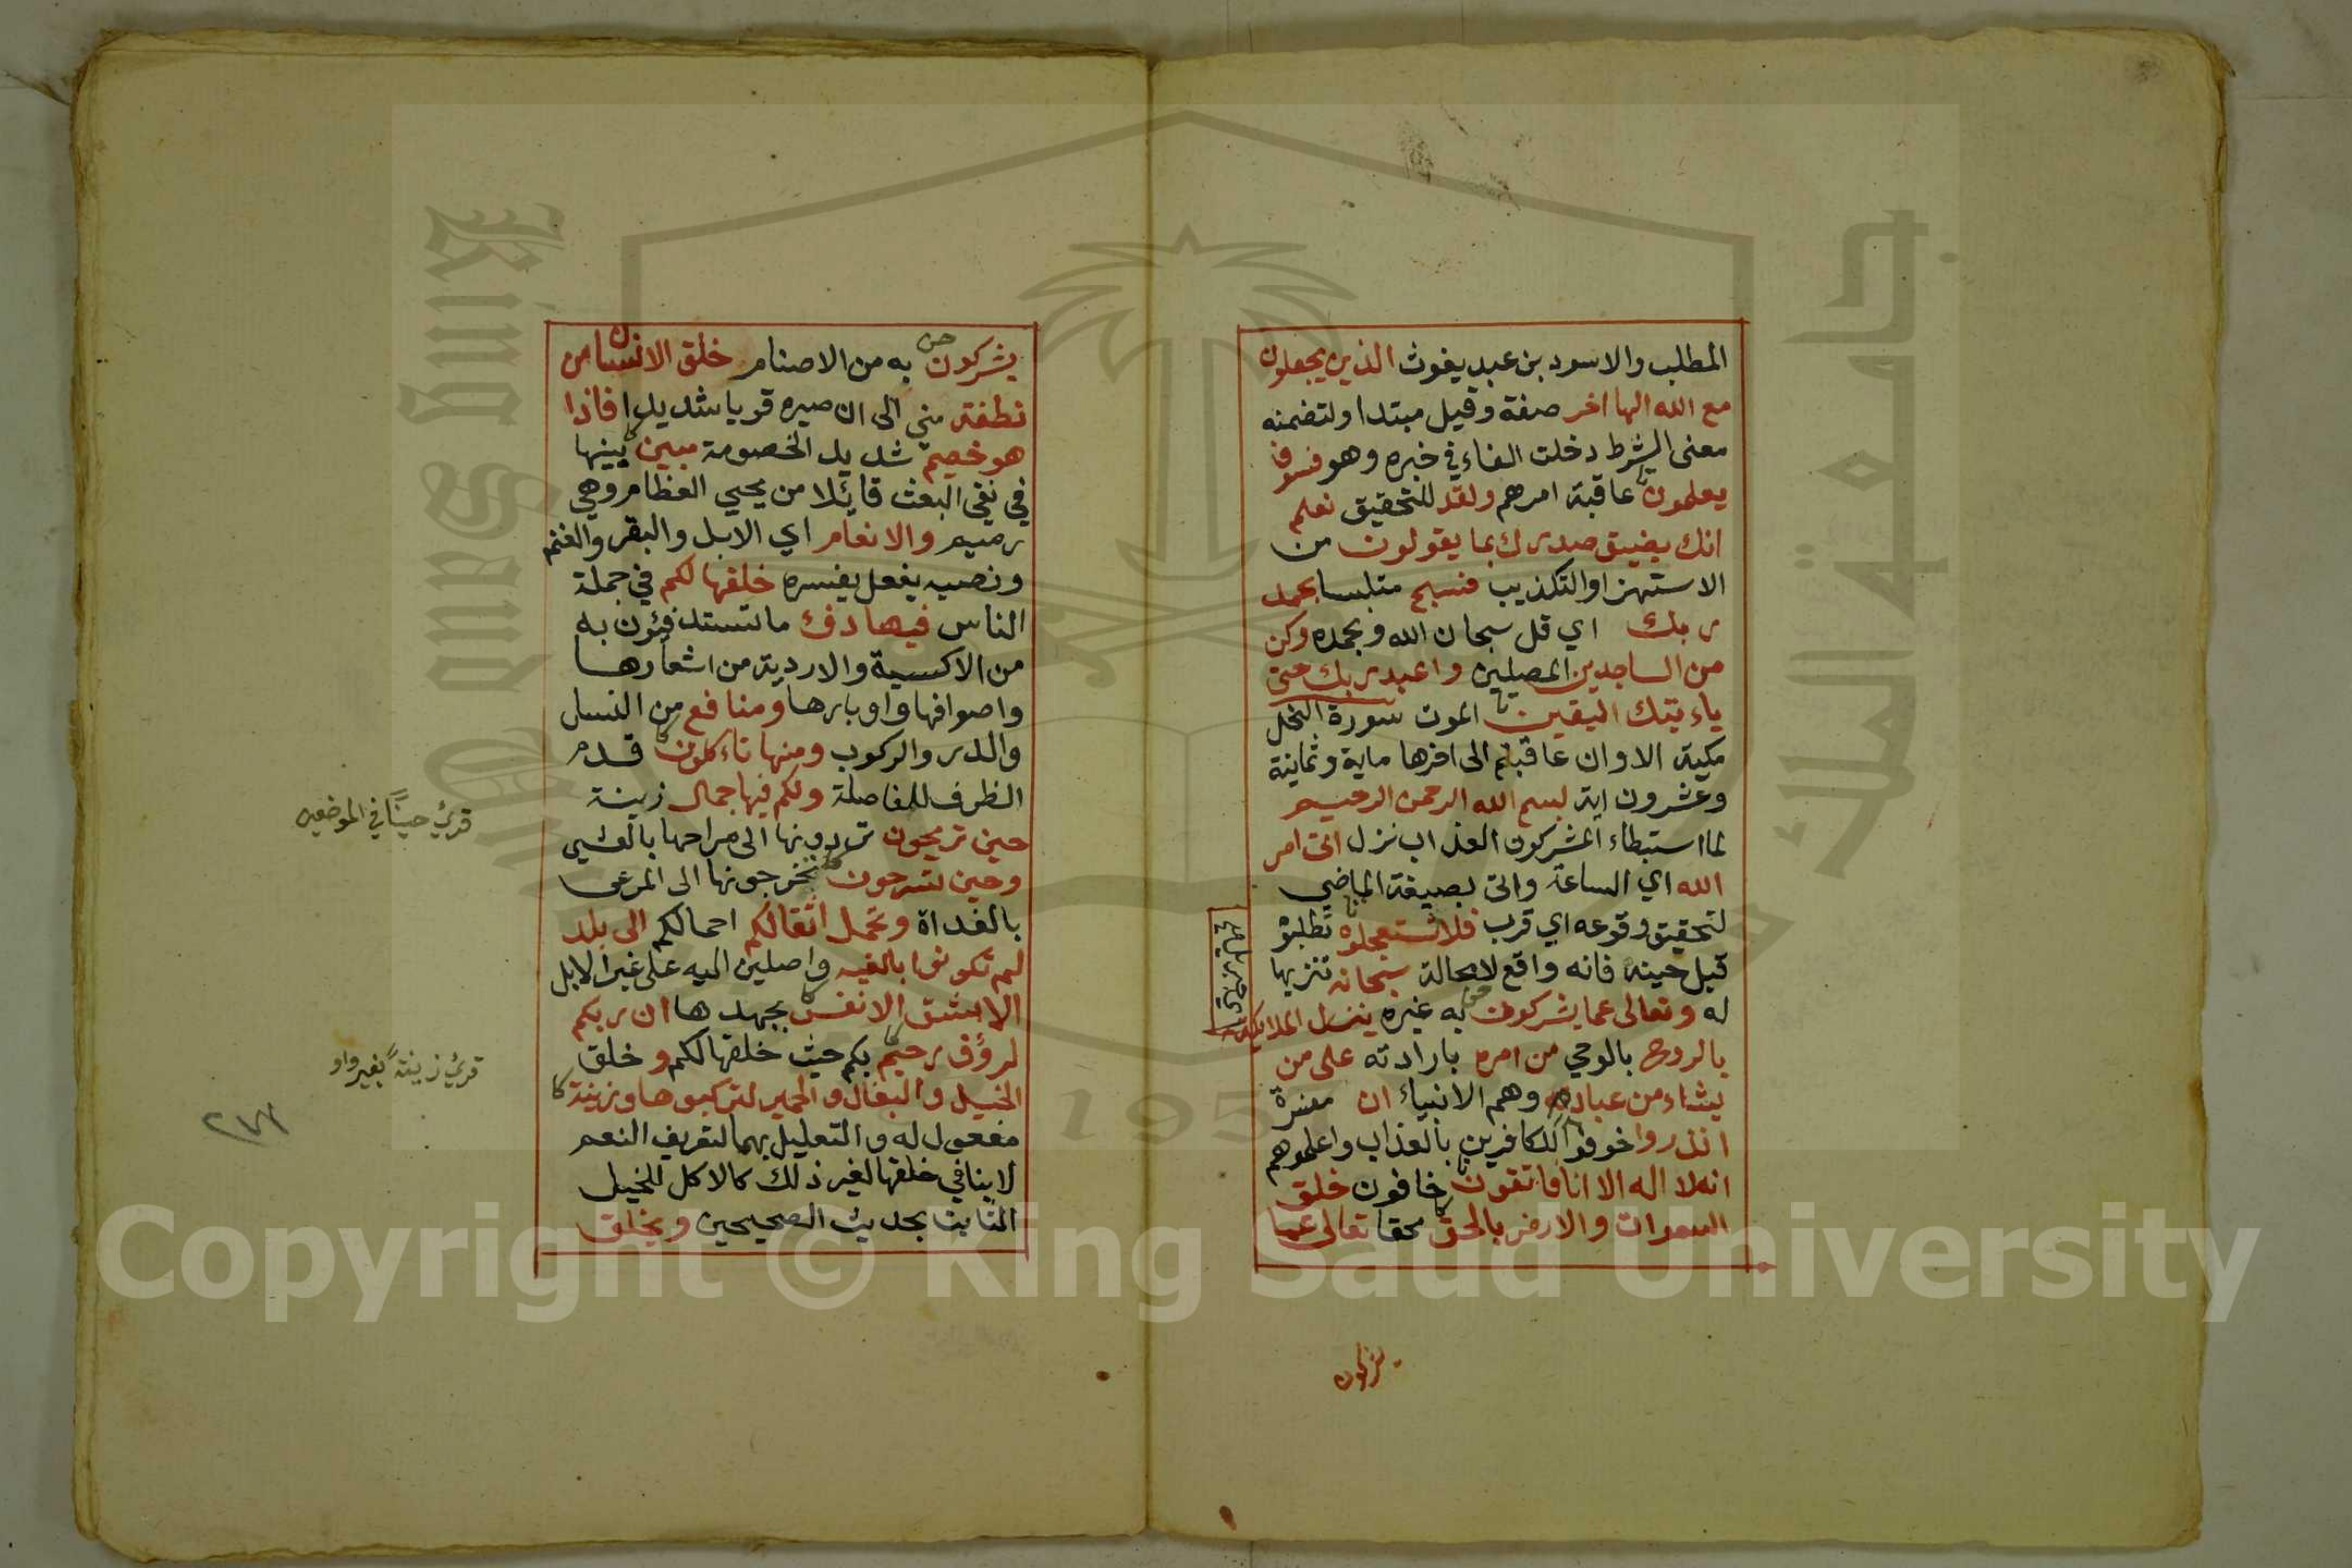 المطلب والاسود بن عبد يغوث الذين يجعلون
مع الله الها اخر صفة وقيل مبتدا ولتضمنه
معنى الشرط دخلت الفاء في خبره وهو فسوف
يعلمون عاقبة امرهم ولقد للتحقيق نعلم
انك يضيق صدرك بما يقولون من
الاستهزا والتكذيب فسبح متلبسا بحمد
ربك اي قل سبحان الله وبحمده وكن
من الساجدين المصلين واعبد ربك حتى
ياءتيك اليقين الموت سورة النحل
مكية الا وان عاقبتم الى اخرها ماية وثمانية
وعشرون اية بسم الله الرحمن الرحيم
لما استبطاء المشركون العذاب نزل اتى امر
الله اي الساعة واتى بصيغة الماضي
لتحقيق وقوعه اي قرب فلا تستعجلوه تطلبوه
قبل حينه فانه واقع لا محالة سبحانه تنزيها
له وتعالى عما يشركون به غيره ينزل الملايكة
اي جبريل
بالروح بالوحي من امره بارادته على من
يشاء من عباده وهم الانبياء ان مفسرة
انذروا خوفوا الكافرين بالعذاب واعلموهم
انه لا اله الا انا فاتقون خافون خلق
السموات والارض بالحق محقا تعالى عما
يشركون به من الاصنام خلق الانسان من
نطفة مني الى ان صيره قويا شديدا فاذا
هو خصيم شديد الخصومة مبين بينها
في نفي البعث قائلا من يحيي العظام وهي
رميم والانعام اي الابل والبقر والغنم
ونصبه بفعل يفسره خلقها لكم في جملة
الناس فيها دفء ما تستدفئون به
من الاكسية والاردية من اشعارها
واصوافها واوبارها ومنافع من النسل
والدر والركوب ومنها تاءكلون قدم
الظرف للفاصلة ولكم فيها جمال زينة
حين تريحون تردونها الى مراحها بالعشي
وحين تسرحون تخرجونها الى المرعى
بالغداة وتحمل اثقالكم احمالكم الى بلد
لم تكونوا بالغيه واصلين اليه على غير الابل
الا بشق الانفس بجهدها ان ربكم
لرؤف رحيم بكم حيث خلقها لكم وخلق
الخيل والبغال والحمير لتركبوها وزينة
مفعول له والتعليل بهما لتعريف النعم
لا ينافي خلقها لغير ذلك كالاكل للخيل
الثابت بحديث الصحيحين ويخلق
قرئ حينًا في الموضعين
قرئ زينةً بغير واو
1957
جامعة الملك
King Saud
Copyright © King Saud University